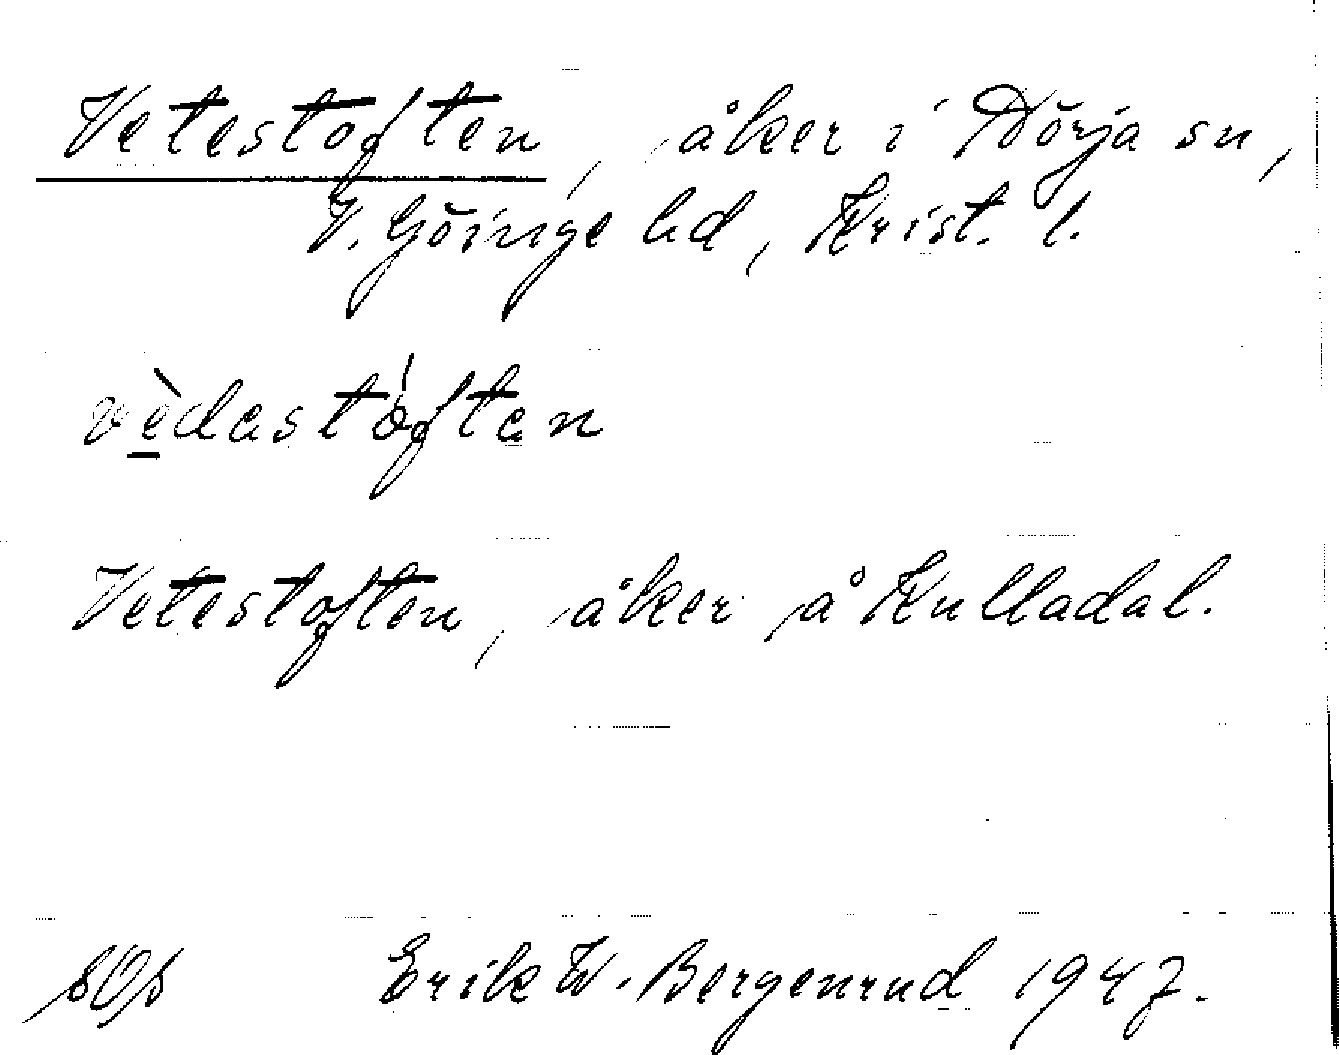 Vetestoften, åker i Nörja sn,
V. Göinge hd, Krist. l.
vèdastóftęn
Vetestoften, åker å Kulladal.
Erik W. Bergenrud 1947.